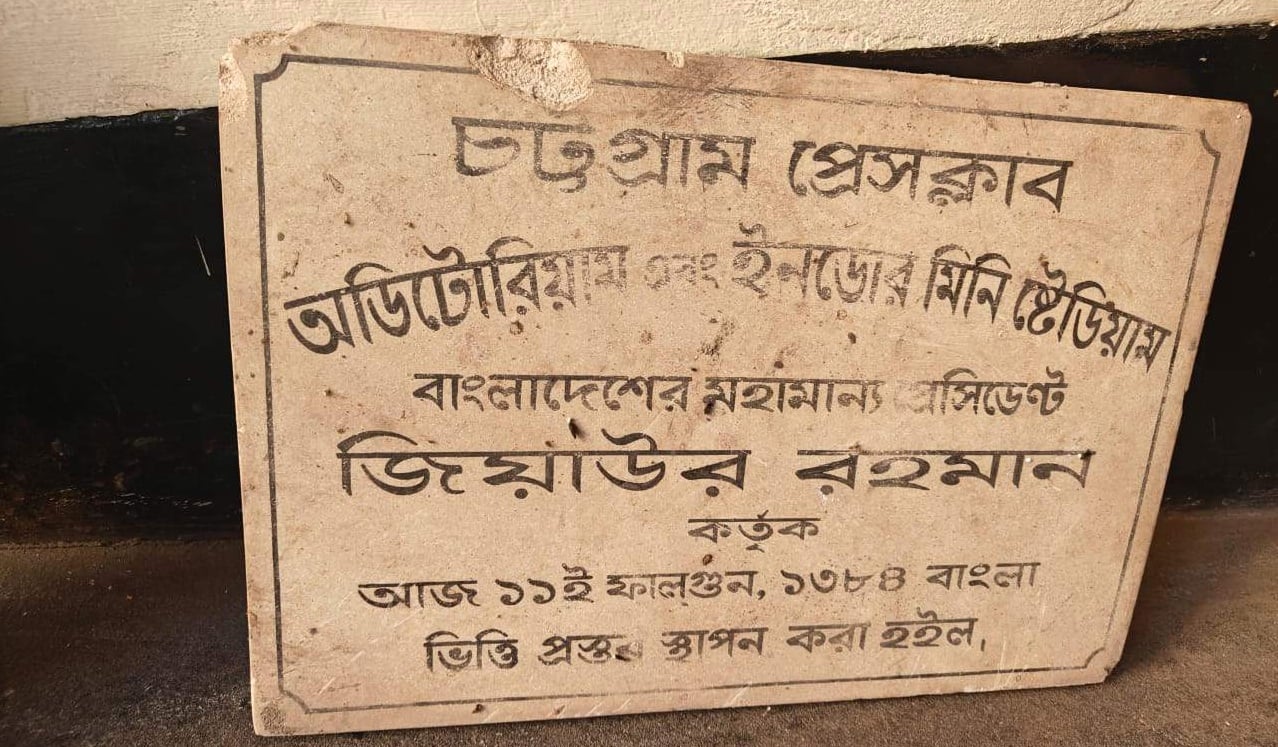 চট্টগ্রাম প্রেসক্লাব
অডিটোরিয়াম এবং ইনডোর মিনি ষ্টেডিয়াম
বাংলাদেশের মহামান্য প্রেসিডেণ্ট
জিয়াউর রহমান
কর্তৃক
আজ ১১ই ফাল্গুন, ১৩৮৪ বাংলা
ভিত্তি প্রস্তর স্থাপন করা হইল,